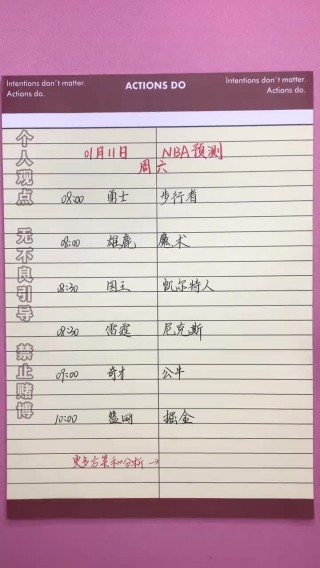 Intentions don't matter.
Actions do.
ACTIONS DO
Intentions don't matter.
Actions do.
个人观点 无不良引导 禁止赌博
01月11日 NBA预测
周六
08:00 勇士 步行者
08:00 雄鹿 魔术
08:30 国王 凯尔特人
08:30 雷霆 尼克斯
09:00 奇才 公牛
10:00 篮网 掘金
更多方案和分析→